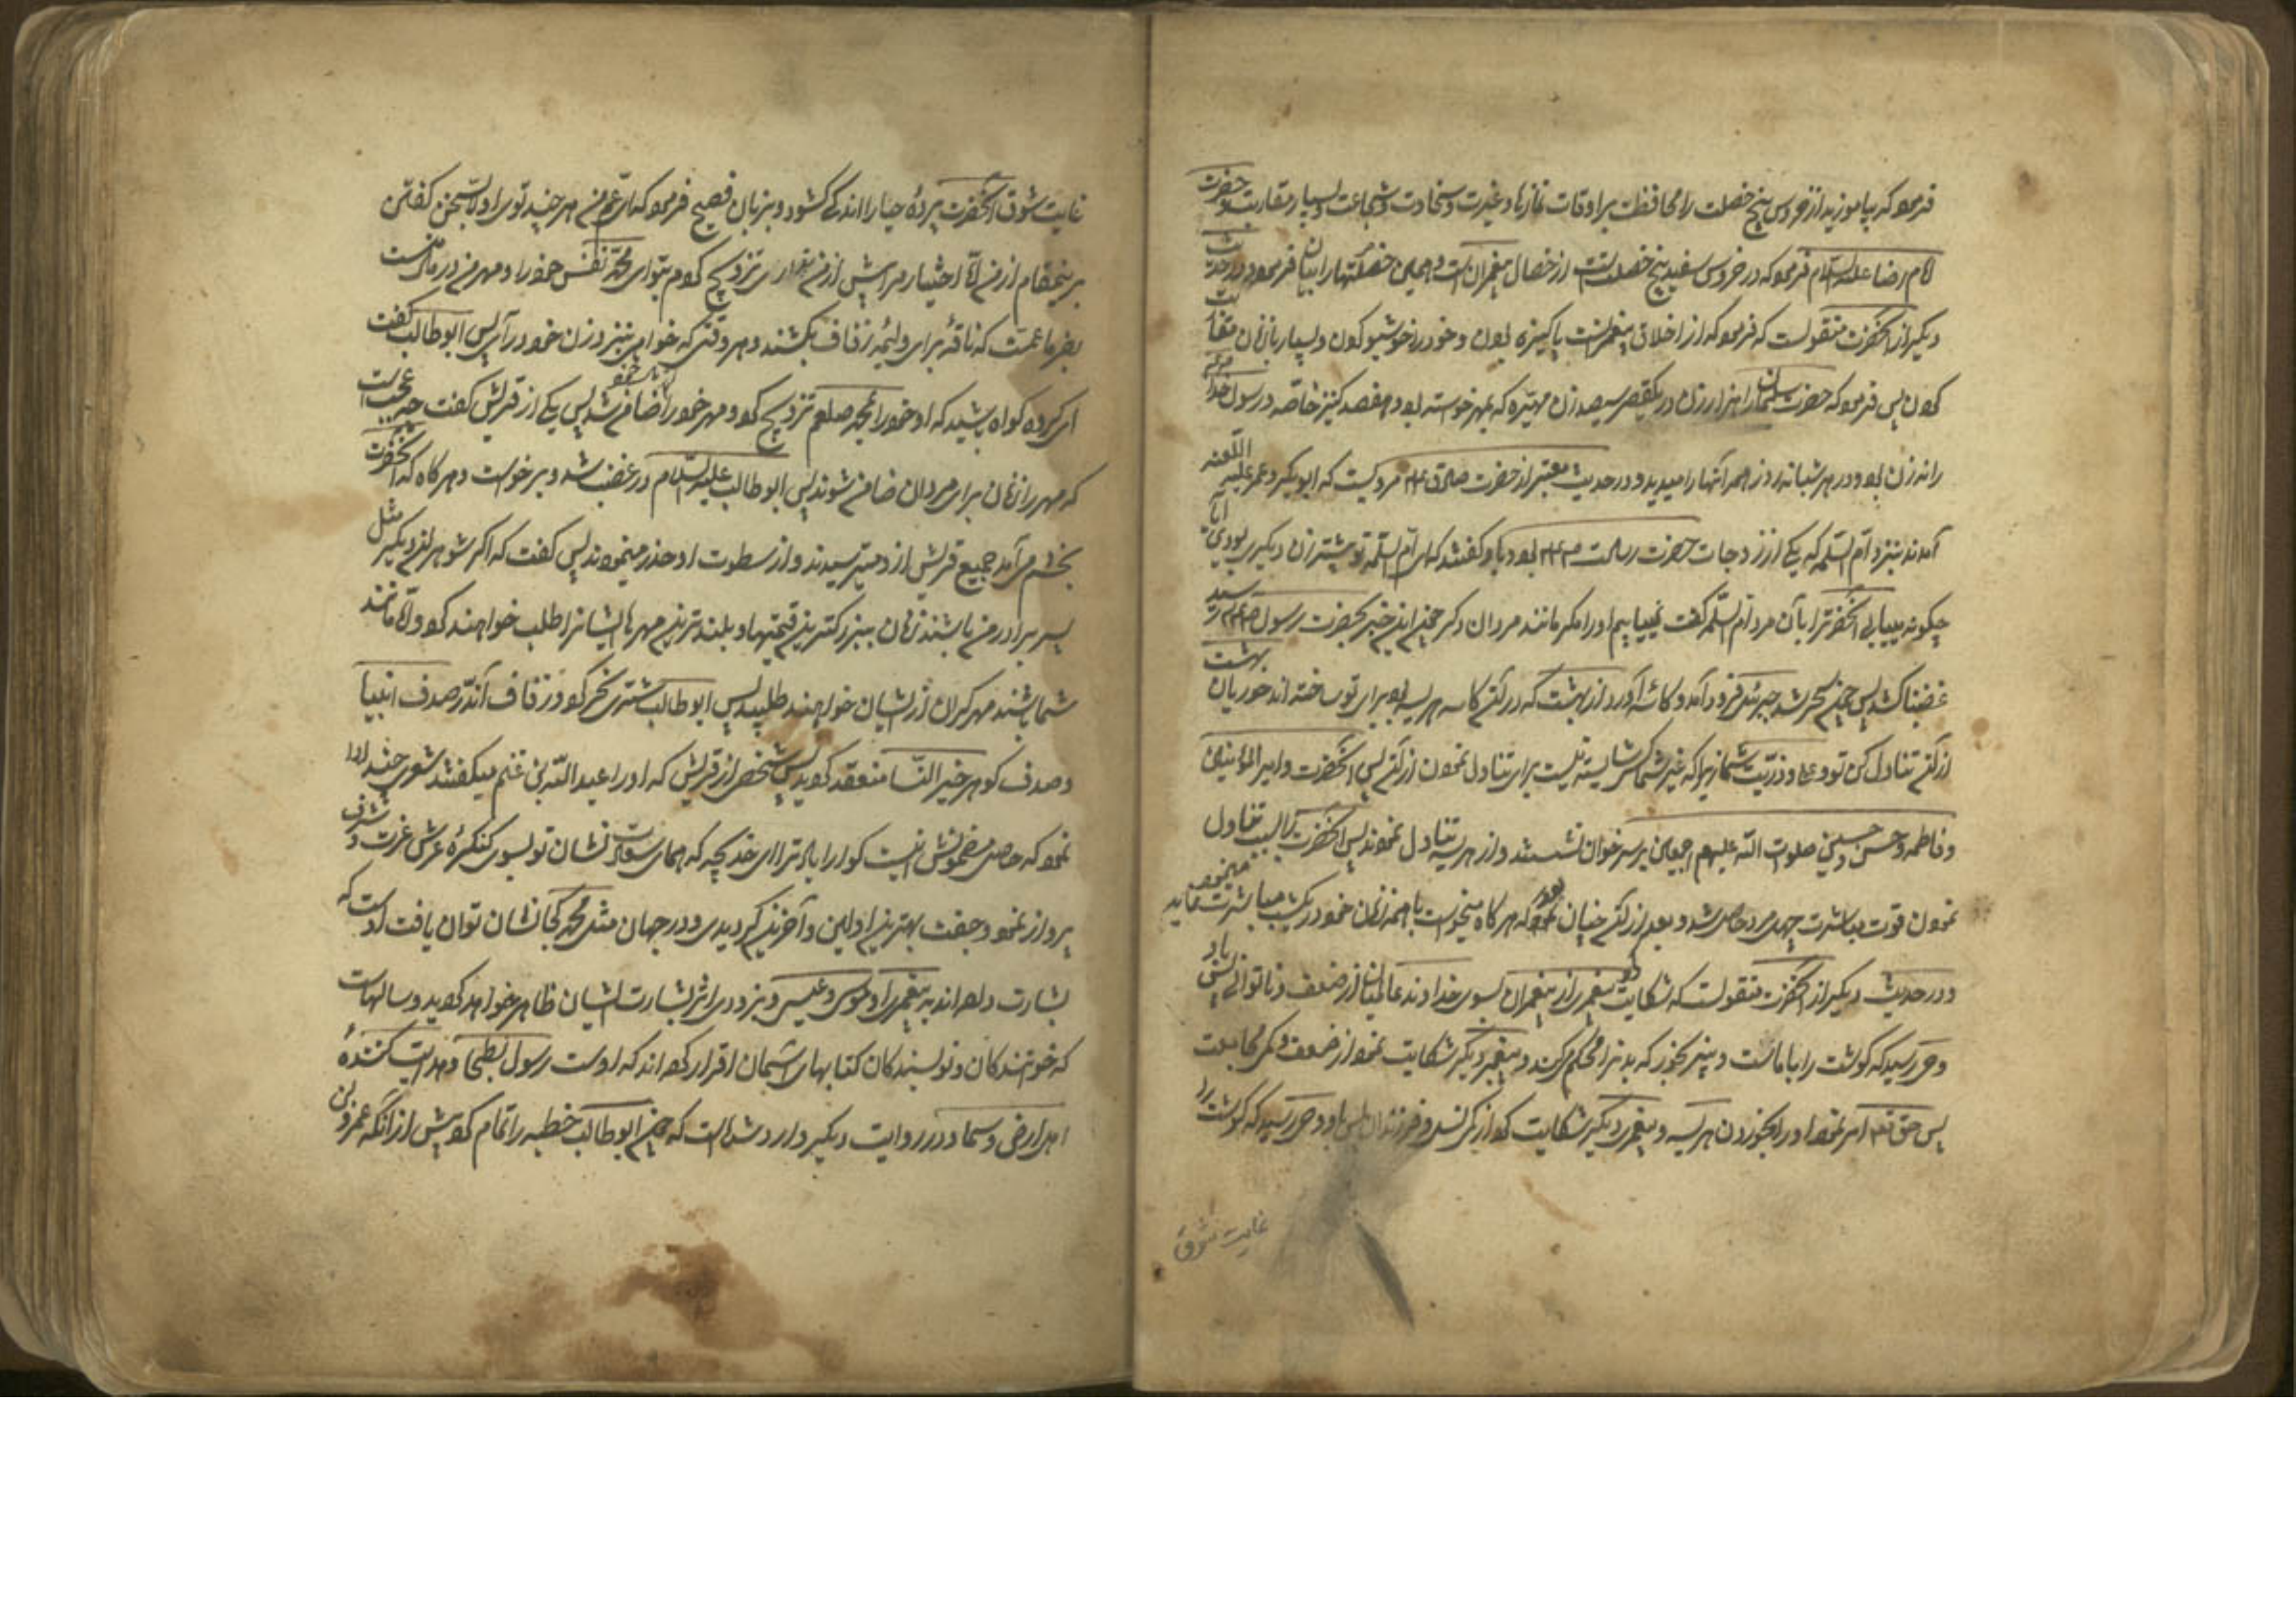 فرمود که بیاموزید از خروس پنج خصلت را محافظت بر اوقات نمازها و غیرت و سخاوت و شجاعت و بسیار مقاربت و حضرت
امام رضا علیه السلام فرمود که در خروس سفید پنج خصلتست از خصال پیغمبران است و همین خصلتها را بیان فرمود و در حدیث
دیگر از آنحضرت منقولست که فرمود که از اخلاق پیغمبرانست پاکیزه بودن و خود را خوشبو کردن و بسیار با زنان مقاربت
کردن پس فرمود که حضرت سلیمان را هزار زن در یکقصر سیصد زن مهیره که بمهر خواسته بود و هفصد کنیز خاصه و رسول خدا
را نه زن بود و در هر شبانه روز همه آنها را میدید و در حدیث معتبر از حضرت صادق مرویست که ابوبکر و عمر علیه اللعنه
آمدند بنزد ام السلمه که یکی از زوجات حضرت رسالت بود و باو گفتند که ای ام السلمه تو پیشتر زن دیگری بودی آیا
چگونه مییابی آنحضرترا بآن مرد ام السلمه گفت نمییابیم او را مگر مانند مردان دیگر چون این خبر بحضرت رسول رسید
غضبناک شد پس چون سحر شد جبرئیل فرود آمد و کاسه آورد از بهشت که در آن کاسه هریسه بود برای تو ساخته اند حوریان بهشت
از آن تناول کن تو و علی و ذریت شما زیرا که غیر شما کس شایسته نیست برای تناول نمودن از آن پس آنحضرت و امیر المؤمنین
و فاطمه و حسن و حسین صلوات الله علیهم اجمعین بر سر خوان نشستند و از هریسه تناول نمودند پس آنحضرت را بسبب تناول
نمودن قوت مباشرت چهل مرد حاصل شد و بعد از آن چنان بود که هرگاه میخواست با همه زنان خود در یکشب مباشرت مینمود
و در حدیث دیگر از آنحضرت منقولست که شکایت کرد پیغمبری از پیغمبران بسوی خداوند عالمیان از ضعف و ناتوانی پس باو
وحی رسید که گوشت را با ماست و پنیر بخور که بدنرا محکم میکند و پیغمبر دیگر شکایت نمود از ضعف و کمی مجامعت
پس حق تعالی امر نمود او را بخوردن هریسه و پیغمبر دیگر شکایت کرد از کمی نسل و فرزندان پس باو وحی رسید که گوشت را
غایت شوق
غایت شوق آنحضرت پرده حیا را اندکی گشود و بزبان فصیح فرمود که ای عم من هر چند تو اولی بسخن گفتن
برینمقام از من اما اختیار مرا بیش از من نداری تزویج کردم بتو ای محمد نفس خود را و مهر من در مال منست
بفرما عمت که ناقه برای ولیمه زفاف بکشند و هر وقتی که خواهی بنزد زن خود در آی پس ابوطالب گفت
ای گروه گواه باشید که او خود را بمحمد صلعم تزویج کرد و مهر خود را ضامن شد پس یکی از قریش گفت چه عجب است
که مهر را زنان برای مردان ضامن شوند پس ابوطالب علیه السلام در غضب شد و برخواست و هرگاه که آنحضرت
بخشم می آمد جمیع قریش از او میترسیدند و از سطوت او حذر مینمودند پس گفت که اگر شوهران دیگر مثل
پسر برادر من باشند زنان ببزرگترین قیمتها و بلندترین مهرها ایشانرا طلب خواهند کرد و اگر مانند
شما باشند مهر گران از ایشان خواهند طلبید پس ابوطالب شتری نحر کرد و زفاف آن در صدف انبیا
و صدف گوهر خیر النسا منعقد گردید پس شخصی از قریش که او را عبد الله بن غنم میگفتند شعری چند ادا
نمود که حاصل مضمونش اینست گوارا باد ترا ای خدیجه که همای سعادت نشان تو بسوی کنگره عرش عزت و شرف
پرواز نمود و جفت بهترین اولین و آخرین گردیدی و در جهان مثل محمد کجا نشان توان یافت اوست که
بشارت داده اند به پیغمبری او موسی و عیسی و بزودی اثر بشارت ایشان ظاهر خواهد گردید و سالهاست
که خوانندگان و نویسندگان کتابهای آسمان اقرار کرده اند که اوست رسول بطحا و هدایت کننده
اهل ارض و سما و در روایت دیگر وارد شده است که چون ابوطالب خطبه را تمام کرد پیش از آنکه عمرو بن